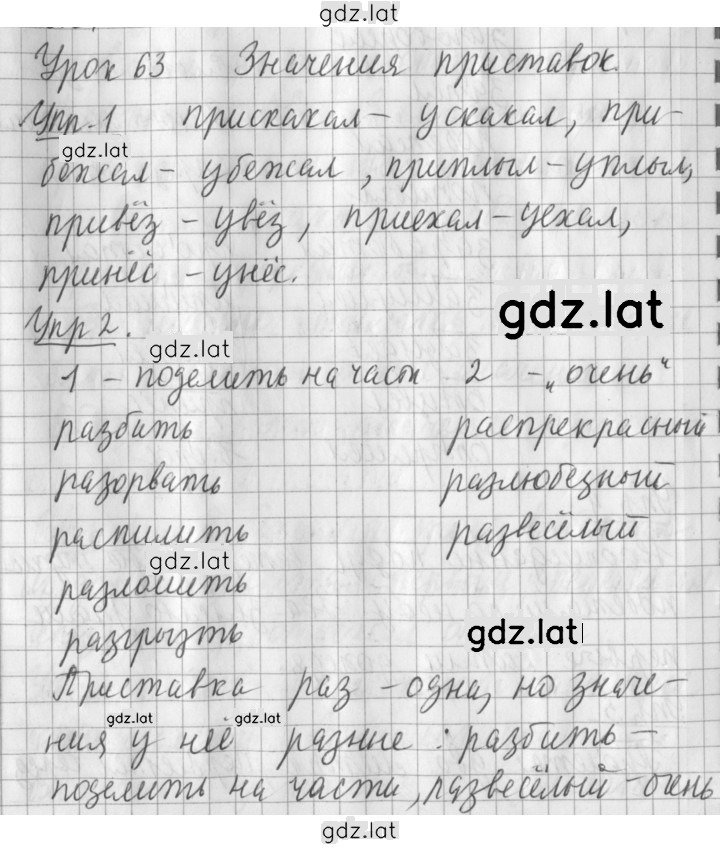 gdz.lat
Урок 63 Значения приставок.
Упр.1 прискакал – ускакал, при-
gdz.lat
бежал – убежал, приплыл – уплыл,
привёз – увёз, приехал – уехал,
принёс – унёс.
gdz.lat
Упр 2.
gdz.lat
1 – поделить на части 2 – „очень“
разбить распрекрасный
разорвать разлюбезный
распилить развесёлый
gdz.lat
разломить
разгрызть
gdz.lat
Приставка раз – одна, но значе-
gdz.lat gdz.lat
ния у неё разные: разбить –
поделить на части, развесёлый – очень
gdz.lat